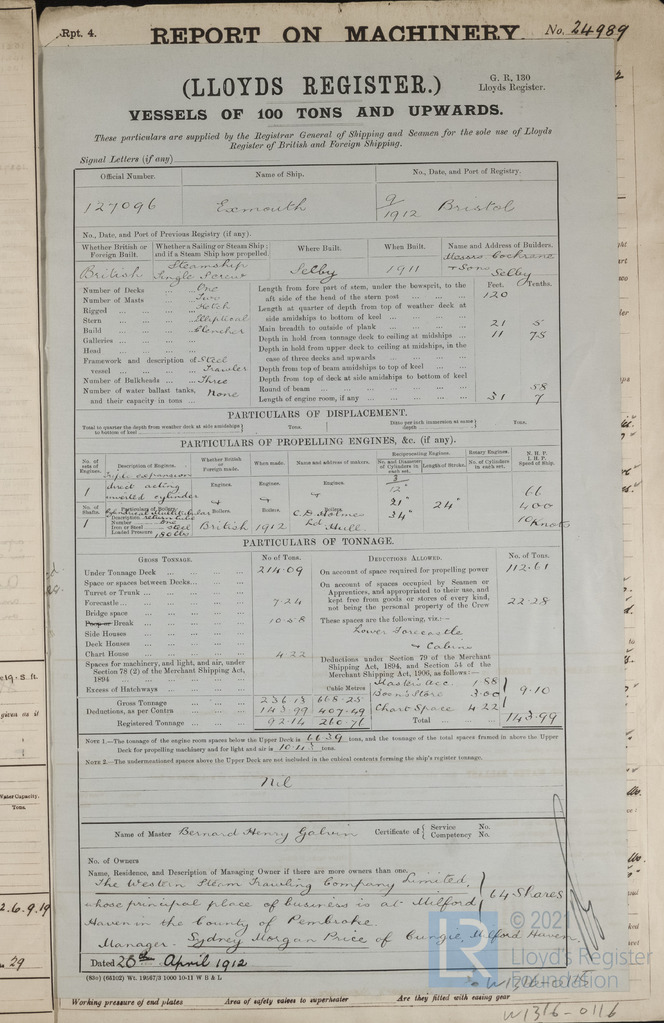 Rpt. 4.
REPORT ON MACHINERY. No. 24989
(LLOYDS REGISTER.)
G. R. 130
Lloyds Register.
VESSELS OF 100 TONS AND UPWARDS.
These particulars are supplied by the Registrar General of Shipping and Seamen for the sole use of Lloyds
Register of British and Foreign Shipping.
Signal Letters (if any)
Official Number. Name of Ship. No., Date, and Port of Registry.
127096 Exmouth 9/1912 Bristol
No., Date, and Port of Previous Registry (if any).
Whether British or Foreign Built. Whether a Sailing or Steam Ship; and if a Steam Ship how propelled. Where Built. When Built. Name and Address of Builders.
British Steamship Single Screw Selby 1911 Messrs Cochrane & Sons Selby
Feet. Tenths.
Number of Decks One
Number of Masts Two
Rigged Ketch
Stern Elliptical
Build Clencher
Galleries
Head
Framework and description of vessel Steel Trawler
Number of Bulkheads Three
Number of water ballast tanks, and their capacity in tons None
Length from fore part of stem, under the bowsprit, to the aft side of the head of the stern post 120
Length at quarter of depth from top of weather deck at side amidships to bottom of keel
Main breadth to outside of plank 21 5
Depth in hold from tonnage deck to ceiling at midships 11 75
Depth in hold from upper deck to ceiling at midships, in the case of three decks and upwards
Depth from top of beam amidships to top of keel
Depth from top of deck at side amidships to bottom of keel
Round of beam 58
Length of engine room, if any 31 7
PARTICULARS OF DISPLACEMENT.
Total to quarter the depth from weather deck at side amidships to bottom of keel Tons. Ditto per inch immersion at same depth Tons.
PARTICULARS OF PROPELLING ENGINES, &c. (if any).
No. of sets of Engines. Description of Engines. Whether British or Foreign made. When made. Name and address of makers. Reciprocating Engines. Rotary Engines. N. H. P. I. H. P. Speed of Ship.
No. and Diameter of Cylinders in each set. Length of Stroke. No. of Cylinders in each set.
1 Triple expansion direct acting inverted cylinder Engines. Engines. Engines. 3 12" 21" 34" 24" 66 400 10 Knots
No. of Shafts. Particulars of Boilers. Boilers. Boilers. Boilers.
1
Description
Number one
Iron or Steel steel
Loaded Pressure 180 lbs
British 1912 C. D. Holmes Ld Hull.
PARTICULARS OF TONNAGE.
GROSS TONNAGE. No. of Tons. DEDUCTIONS ALLOWED. No. of Tons.
Under Tonnage Deck 214.09
Space or spaces between Decks
Turret or Trunk
Forecastle 7.24
Bridge space
Poop or Break 10.58
Side Houses
Deck Houses
Chart House 4.22
Spaces for machinery, and light, and air, under Section 78 (2) of the Merchant Shipping Act, 1894
Excess of Hatchways
Cubic Metres
Gross Tonnage 236.13 668.25
Deductions, as per Contra 143.99 407.49
Registered Tonnage 92.14 260.76
On account of space required for propelling power 112.61
On account of spaces occupied by Seamen or Apprentices, and appropriated to their use, and kept free from goods or stores of every kind, not being the personal property of the Crew 22.28
These spaces are the following, viz.:—
Lower Forecastle
& Cabins
Deductions under Section 79 of the Merchant Shipping Act, 1894, and Section 54 of the Merchant Shipping Act, 1906, as follows:—
Master's acc. 1.88
Bosn's Store 3.00 9.10
Chart Space 4.22
Total 143.99
NOTE 1.—The tonnage of the engine room spaces below the Upper Deck is 66.39 tons, and the tonnage of the total spaces framed in above the Upper
Deck for propelling machinery and for light and air is 10.43 tons.
NOTE 2.—The undermentioned spaces above the Upper Deck are not included in the cubical contents forming the ship's register tonnage.
Nil
Name of Master Bernard Henry Galvin Certificate of { Service No. Competency No.
No. of Owners
Name, Residence, and Description of Managing Owner if there are more owners than one.
The Western Steam Trawling Company Limited,
whose principal place of business is at Milford 64 Shares
Haven in the County of Pembroke.
Manager - Sydney Morgan Price of Milford Haven.
Dated 26th April 1912
(83c) (66102) Wt. 19567/3 1000 10-11 W B & L
© 2021
LR
Lloyd's Register
Foundation
W1316-0115
Working pressure of end plates Area of safety valves to superheater Are they fitted with easing gear
W1316-0116
given as it
Water Capacity.
Tons.
2.6.9.19
29